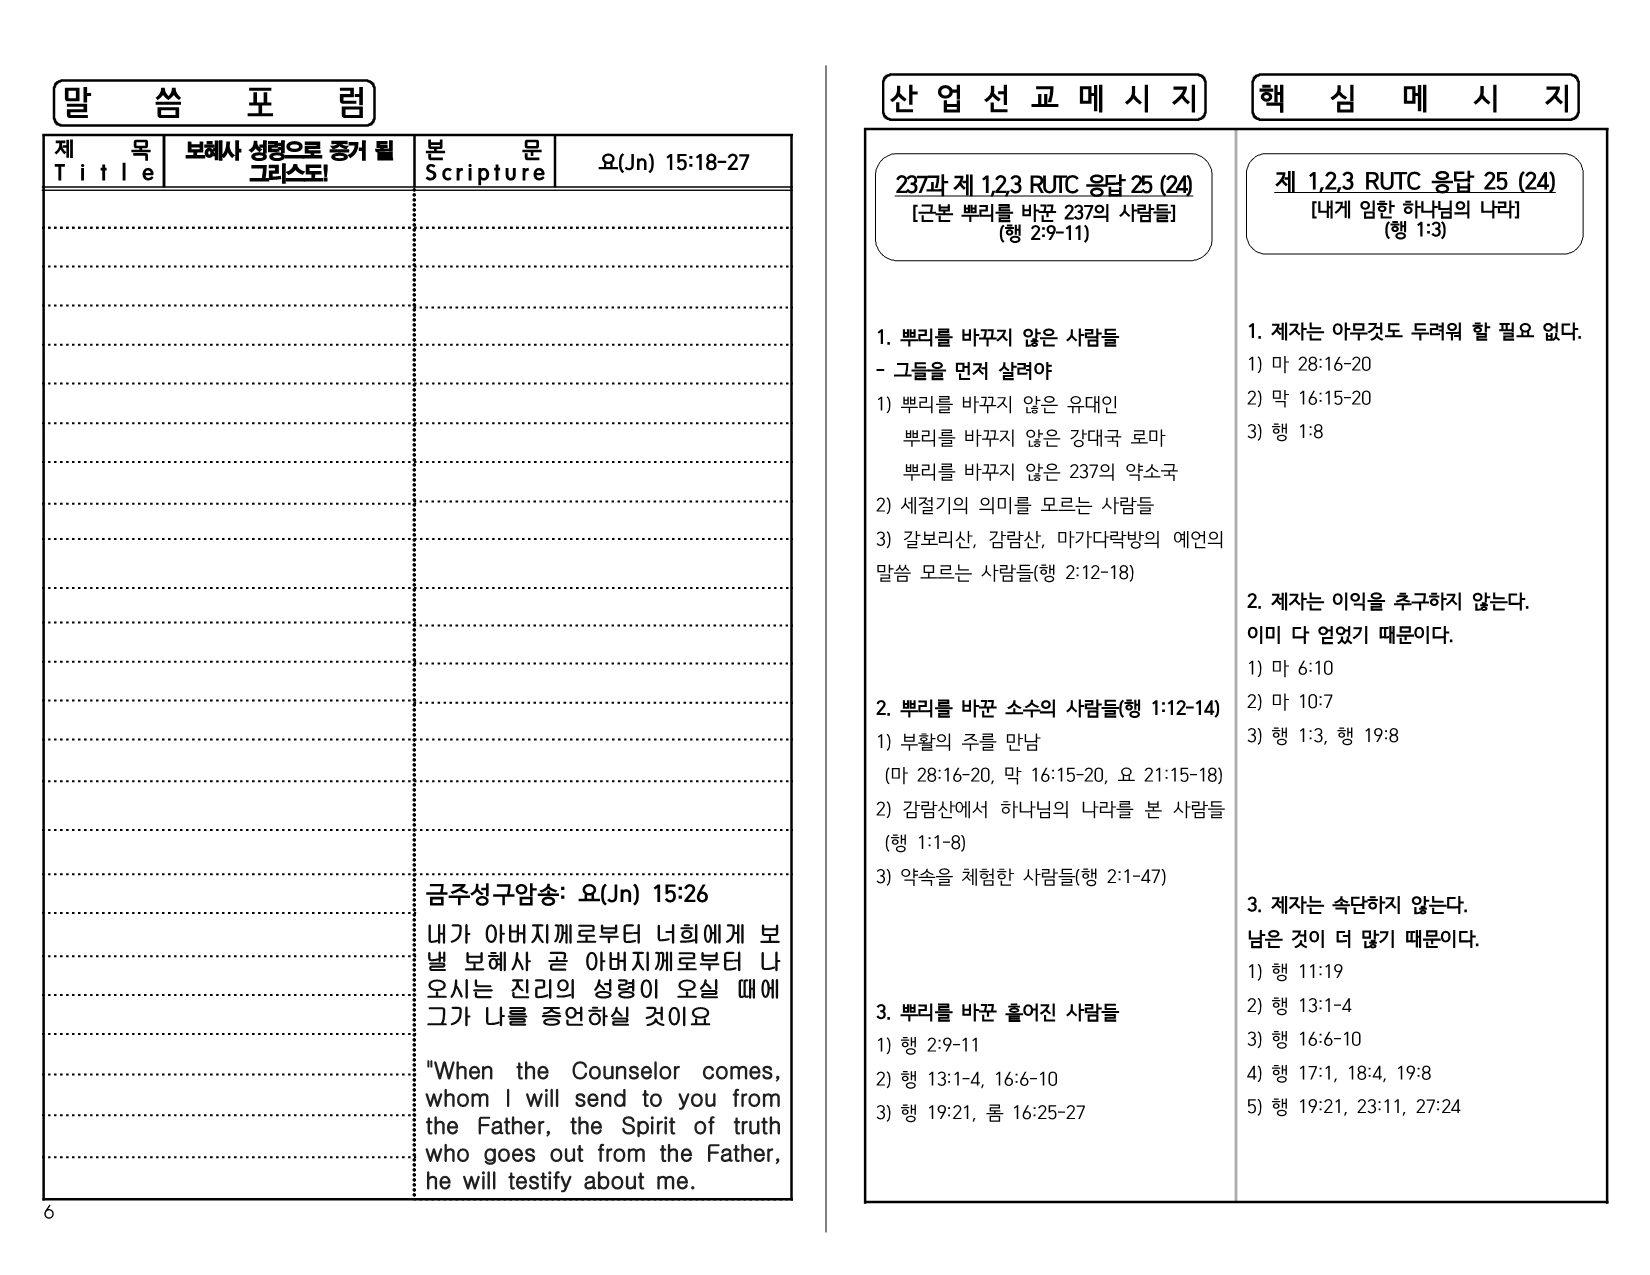 말 씀 포 럼
제 목
Title
보혜사 성령으로 증거 될
그리스도!
본 문
Scripture
요(Jn) 15:18-27
금주성구암송: 요(Jn) 15:26
내가 아버지께로부터 너희에게 보
낼 보혜사 곧 아버지께로부터 나
오시는 진리의 성령이 오실 때에
그가 나를 증언하실 것이요
"When the Counselor comes,
whom I will send to you from
the Father, the Spirit of truth
who goes out from the Father,
he will testify about me.
6
산 업 선 교 메 시 지
237과 제 1,2,3 RUTC 응답 25 (24)
[근본 뿌리를 바꾼 237의 사람들]
(행 2:9-11)
1. 뿌리를 바꾸지 않은 사람들
- 그들을 먼저 살려야
1) 뿌리를 바꾸지 않은 유대인
뿌리를 바꾸지 않은 강대국 로마
뿌리를 바꾸지 않은 237의 약소국
2) 세절기의 의미를 모르는 사람들
3) 갈보리산, 감람산, 마가다락방의 예언의
말씀 모르는 사람들(행 2:12-18)
2. 뿌리를 바꾼 소수의 사람들(행 1:12-14)
1) 부활의 주를 만남
(마 28:16-20, 막 16:15-20, 요 21:15-18)
2) 감람산에서 하나님의 나라를 본 사람들
(행 1:1-8)
3) 약속을 체험한 사람들(행 2:1-47)
3. 뿌리를 바꾼 흩어진 사람들
1) 행 2:9-11
2) 행 13:1-4, 16:6-10
3) 행 19:21, 롬 16:25-27
핵 심 메 시 지
제 1,2,3 RUTC 응답 25 (24)
[내게 임한 하나님의 나라]
(행 1:3)
1. 제자는 아무것도 두려워 할 필요 없다.
1) 마 28:16-20
2) 막 16:15-20
3) 행 1:8
2. 제자는 이익을 추구하지 않는다.
이미 다 얻었기 때문이다.
1) 마 6:10
2) 마 10:7
3) 행 1:3, 행 19:8
3. 제자는 속단하지 않는다.
남은 것이 더 많기 때문이다.
1) 행 11:19
2) 행 13:1-4
3) 행 16:6-10
4) 행 17:1, 18:4, 19:8
5) 행 19:21, 23:11, 27:24